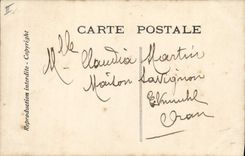 CARTE POSTALE
Mlle Claudia Martin
Maison Savignon
Eckmuhl
Oran
Reproduction interdite - Copyright